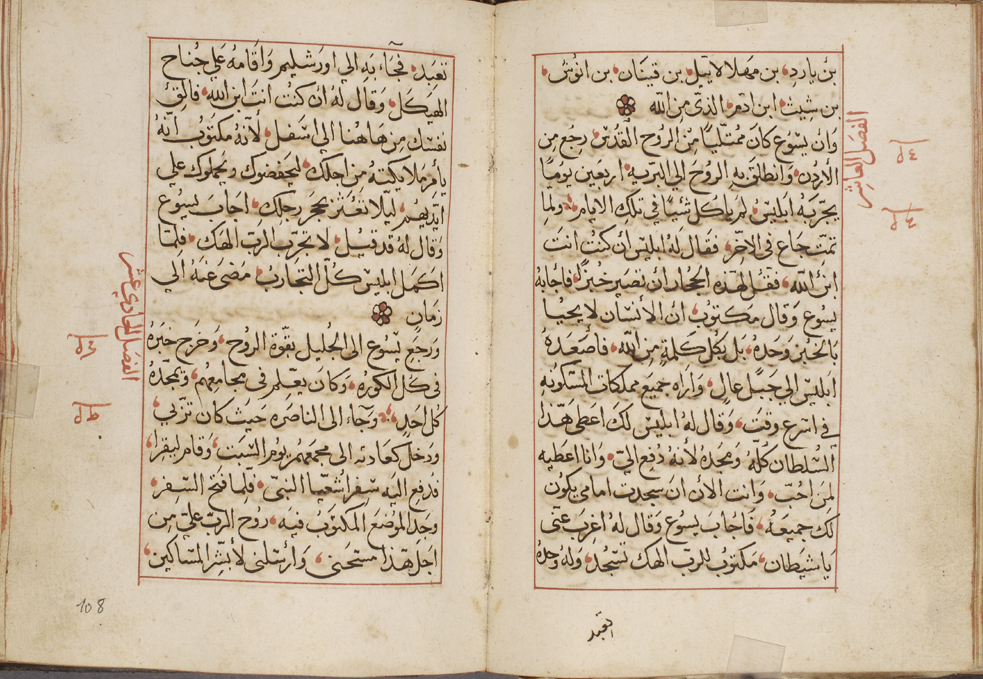 بن يارد بن مهلالاييل بن قينان بن انوش
بن شيث ابن ادم الذي من الله
الفصل العاشر
وان يسوع كان ممتليًا من الروح القدس رجع من
الأردن وانطلق به الروح الي البريه اربعين يومًا
يجرّبه ابليس لم ياكل شيًا في تلك الايام ولما
تمت جاع في الاخر فقال له ابليس ان كنت انت
ابن الله فقل لهذه الحجاره ان تصير خبزًا فاجابه
يسوع وقال مكتوب ان الانسان لا يحيا
بالخبز وحده بل بكل كلمة من الله فاصعده
ابليس الي جبل عال واراه جميع مملكات المسكونه
في اسرع وقت وقال له ابليس لك اعطي هذا
السلطان كله ومجده لأنه دفع اليّ وانا اعطيه
لمن احب وانت الان ان سجدت امامي يكون
لك جميعه فاجاب يسوع وقال له اغرب عني
يا شيطان مكتوب للرب الهك تسجد وله وحده
تعبد
تعبد فجاء به الي اورشليم واقامه علي جناح
الهيكل وقال له ان كنت انت ابن الله فالق
نفسك من هاهنا الي اسفل لأنه مكتوب انه
يأمر ملايكته من اجلك ليحفضوك ويحملوك علي
ايديهم ليلا تعثر بحجر رجلك اجاب يسوع
وقال له قد قيل لا تجرّب الرب الهك فلمّا
اكمل ابليس كلّ التجارب مضي عنه الي
زمان
الفصل الحادي عشر
ورجع يسوع الى الجليل بقوة الروح وخرج خبره
في كل الكوره وكان يعلم في مجامعهم ويمجده
كل احد وجاء الى الناصره حيث كان تربي
ودخل كعادته الى مجمعهم يوم السبت وقام ليقرا
فدفع اليه سفر اشعيا النبي فلما فتح السفر
وجد الموضع المكتوب فيه روح الرب علي من
اجل هذا مسحني وارسلني لأبشر المساكين
108